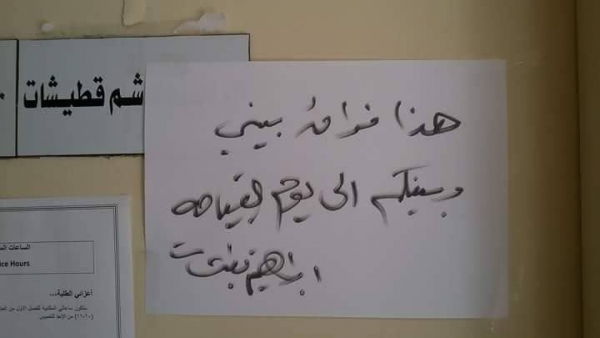 شم قطيشات
هذا فراق بيني
وبينكم الى يوم القيامه
ابراهيم
الساعات الم
ice Hours
أعزائي الطلبة...